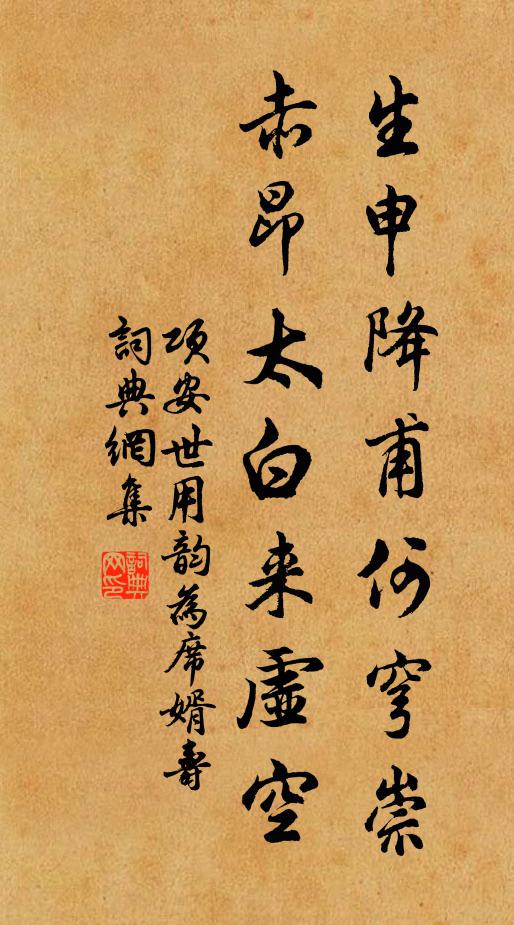 生申降甫何穹崇
赤昴太白来虚空
项安世用韵為席婿壽
詞典網集
詞典网印